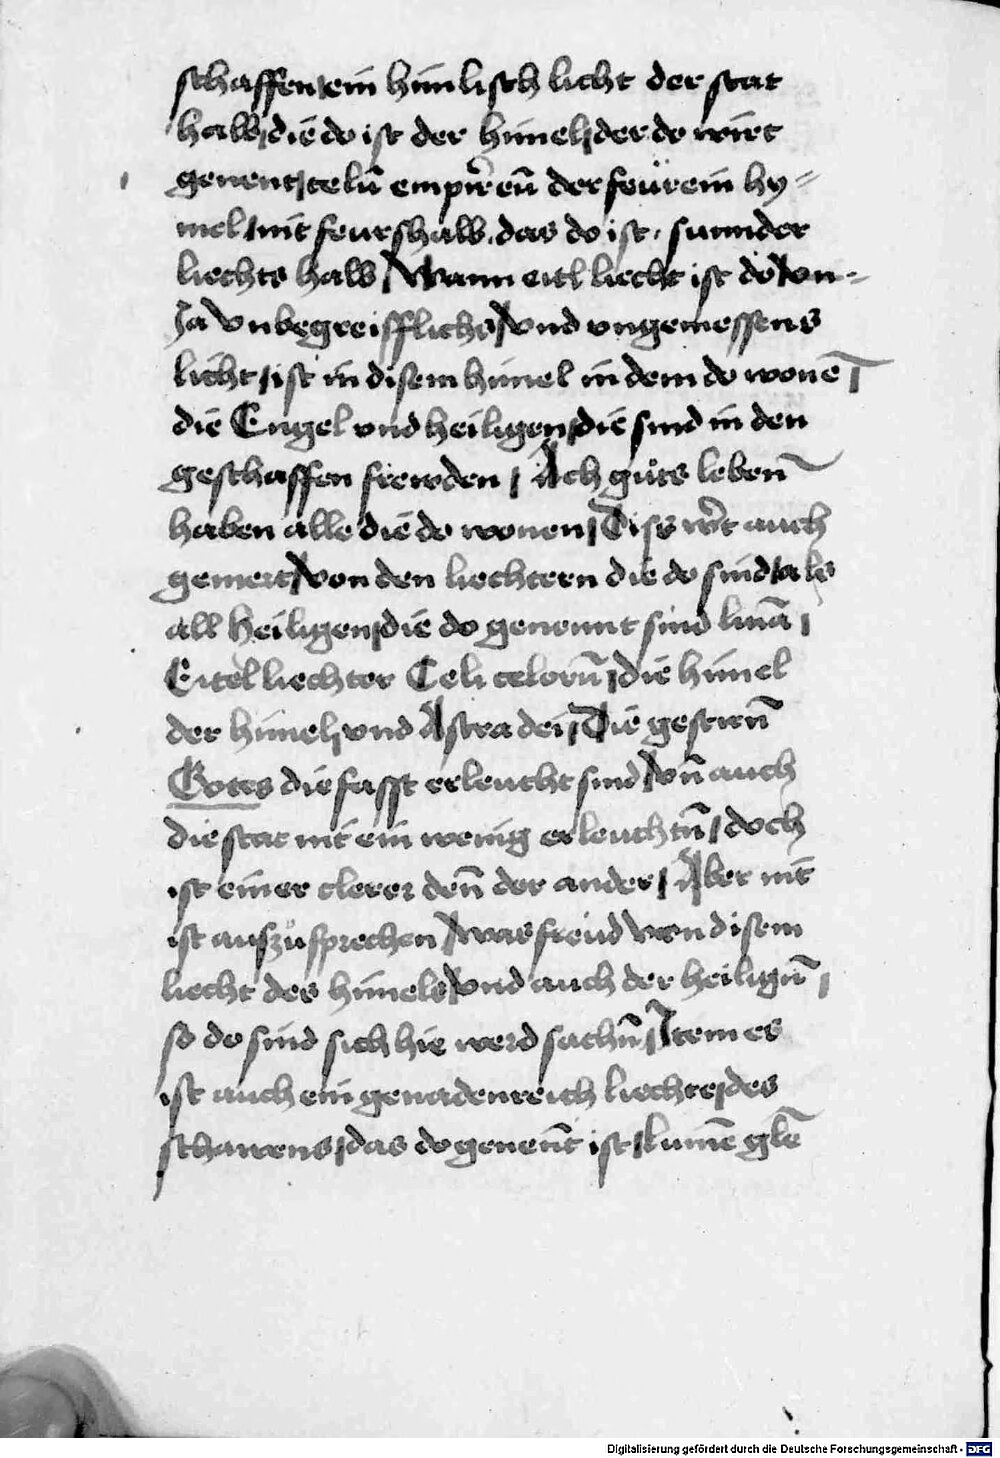 schaffen / ein himlisch licht der stat
halb / die do ist der himel / der do wirt
genent / celū empireū der feürein hy=
mel / nit feurshalb . das do ist . sunnder
liechts halb / Wann eitl liecht ist do von=
Ja vnbegreifflichs / vnd vngemessens
licht / ist in disem himel in dem do wonē
die Engel vnd heiligen / die sind in den
geschaffen frewden / Ach guts leben
haben alle die do wonen / Diss wirt auch
gemert / von den liechtern die do sind / als
all heiligen / die do genennt sind
Eitel liechter Celi celorū / die himel
der himel / vnd Astra dei / Die gestirn̄
Gotes die fasst erleucht sind / vn̄ auch
die stat nit ein wenig erleuchtn̄ / doch
ist einer clerer den̄ der ander / Aber nit
ist auszusprechen / was freud von disem
liecht des himels / vnd auch der heilign̄ /
so do sind sich hie werd sachn̄ / Item es
ist auch ein genadenreich liechte / des
schawens / das do genen̄t ist / lumē glē
Digitalisierung gefördert durch die Deutsche Forschungsgemeinschaft - DFG